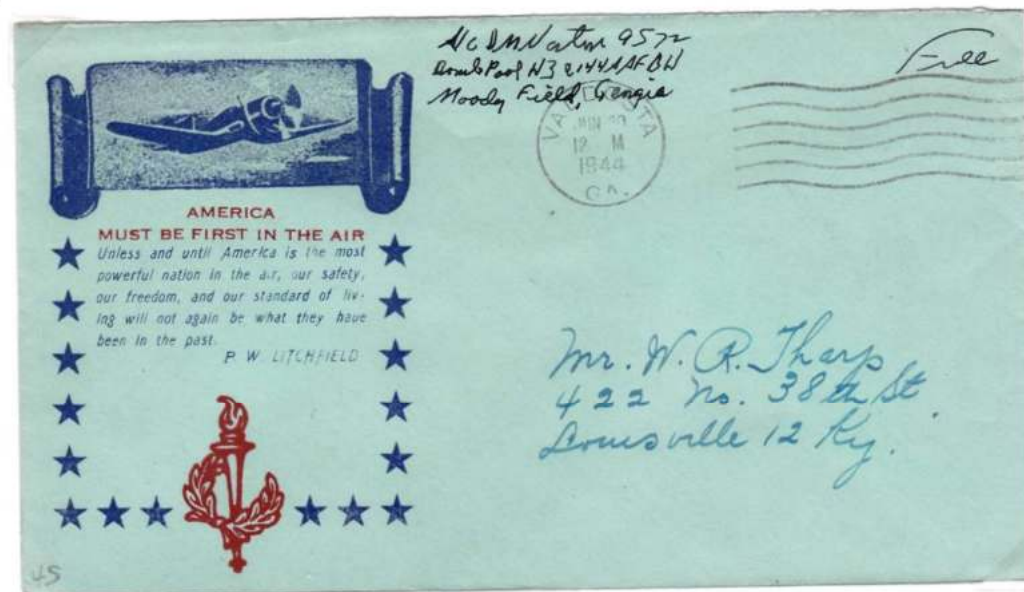 Moody Field, Georgia
Free
VALDOSTA
JUN
12 M
1944
GA.
AMERICA
MUST BE FIRST IN THE AIR
Unless and until America is the most
powerful nation in the air, our safety,
our freedom, and our standard of liv-
ing will not again be what they have
been in the past.
P. W. LITCHFIELD
Mr. W. R. Tharp
422 No. 38th St.
Louisville 12 Ky.
45